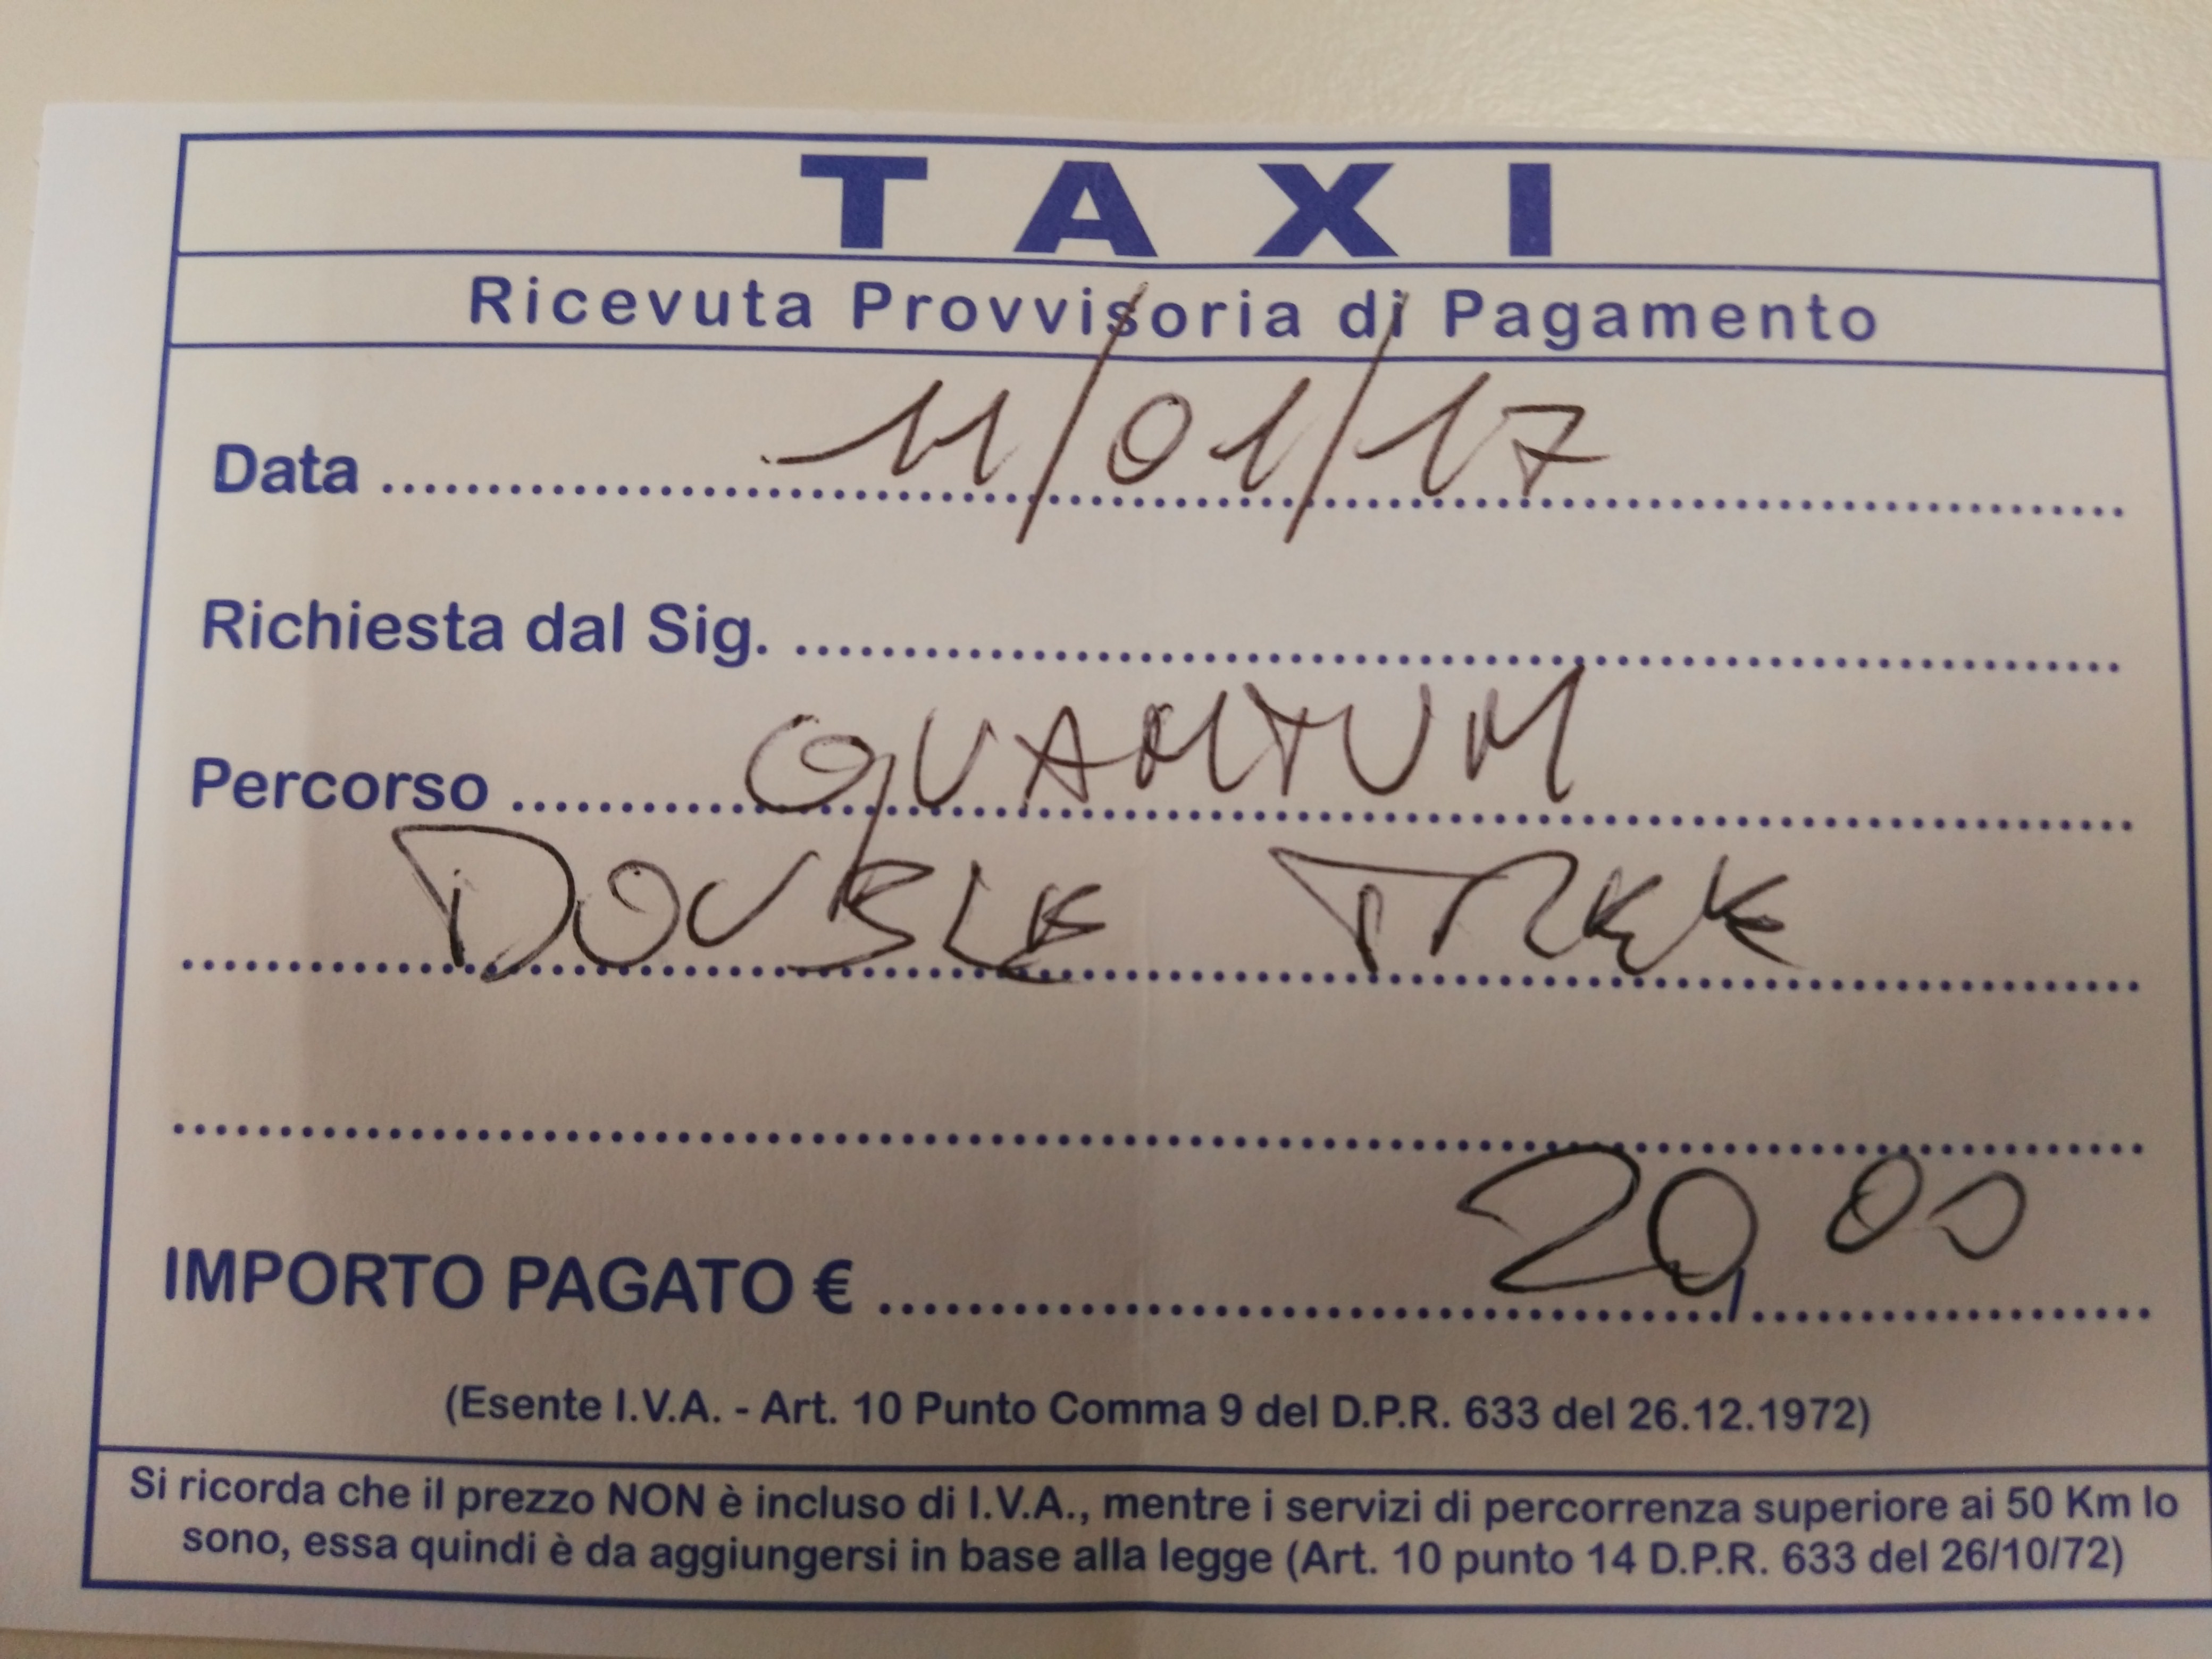 TAXI
Ricevuta Provvisoria di Pagamento
Data 11/01/17
Richiesta dal Sig.
Percorso QUANTUM
DOUBLE TREE
IMPORTO PAGATO € 20,00
(Esente I.V.A. - Art. 10 Punto Comma 9 del D.P.R. 633 del 26.12.1972)
Si ricorda che il prezzo NON è incluso di I.V.A., mentre i servizi di percorrenza superiore ai 50 Km lo
sono, essa quindi è da aggiungersi in base alla legge (Art. 10 punto 14 D.P.R. 633 del 26/10/72)